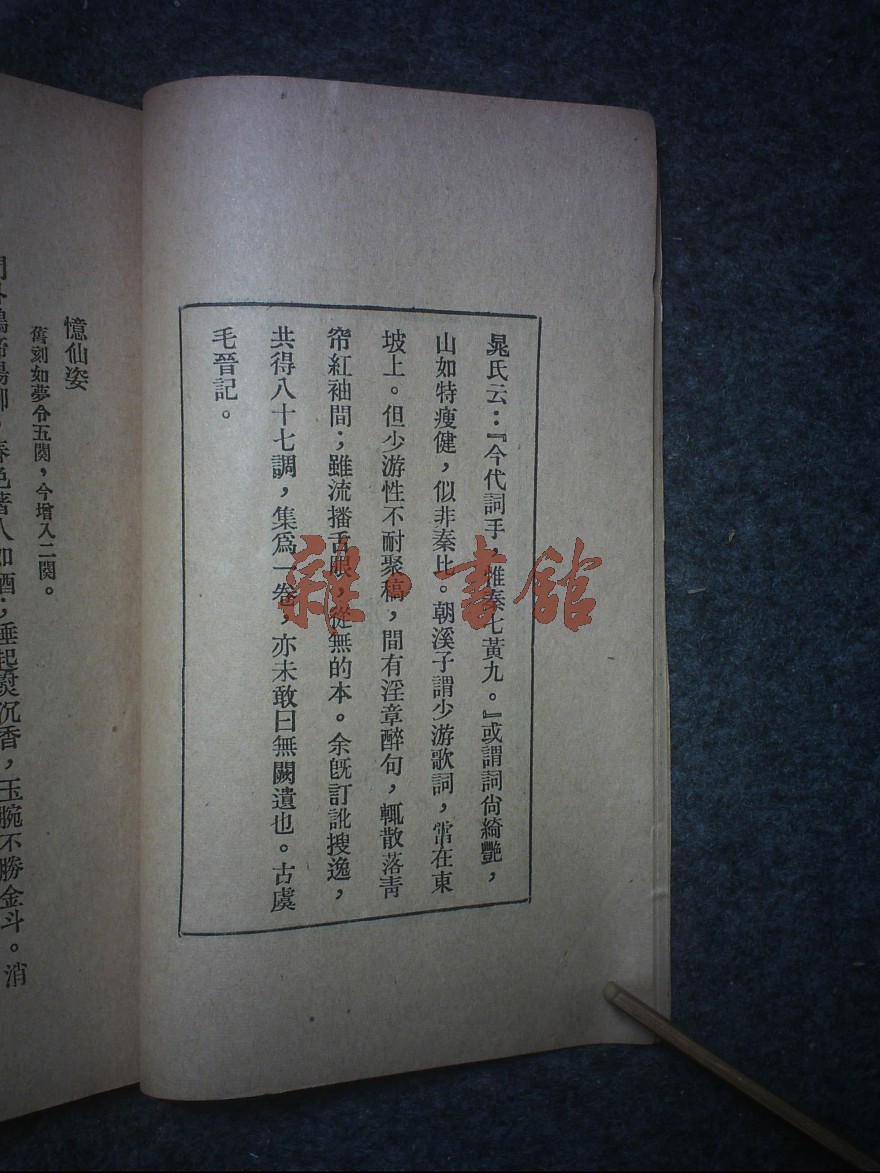 晁氏云：『今代詞手，惟秦七黃九。』或謂詞尙綺艷，
山如特瘦健，似非秦比。朝溪子謂少游歌詞，當在東
坡上。但少游性不耐聚稿，間有淫章醉句，輒散落青
帘紅袖間；雖流播舌眼，從無的本。余旣訂訛搜逸，
共得八十七調，集爲一卷，亦未敢曰無闕遺也。古虞
毛晉記。
憶仙姿
舊刻如夢令五闋，今增入二闋。
門外鴉啼楊柳，春色著人如酒；睡起熨沉香，玉腕不勝金斗。消
雜·書館